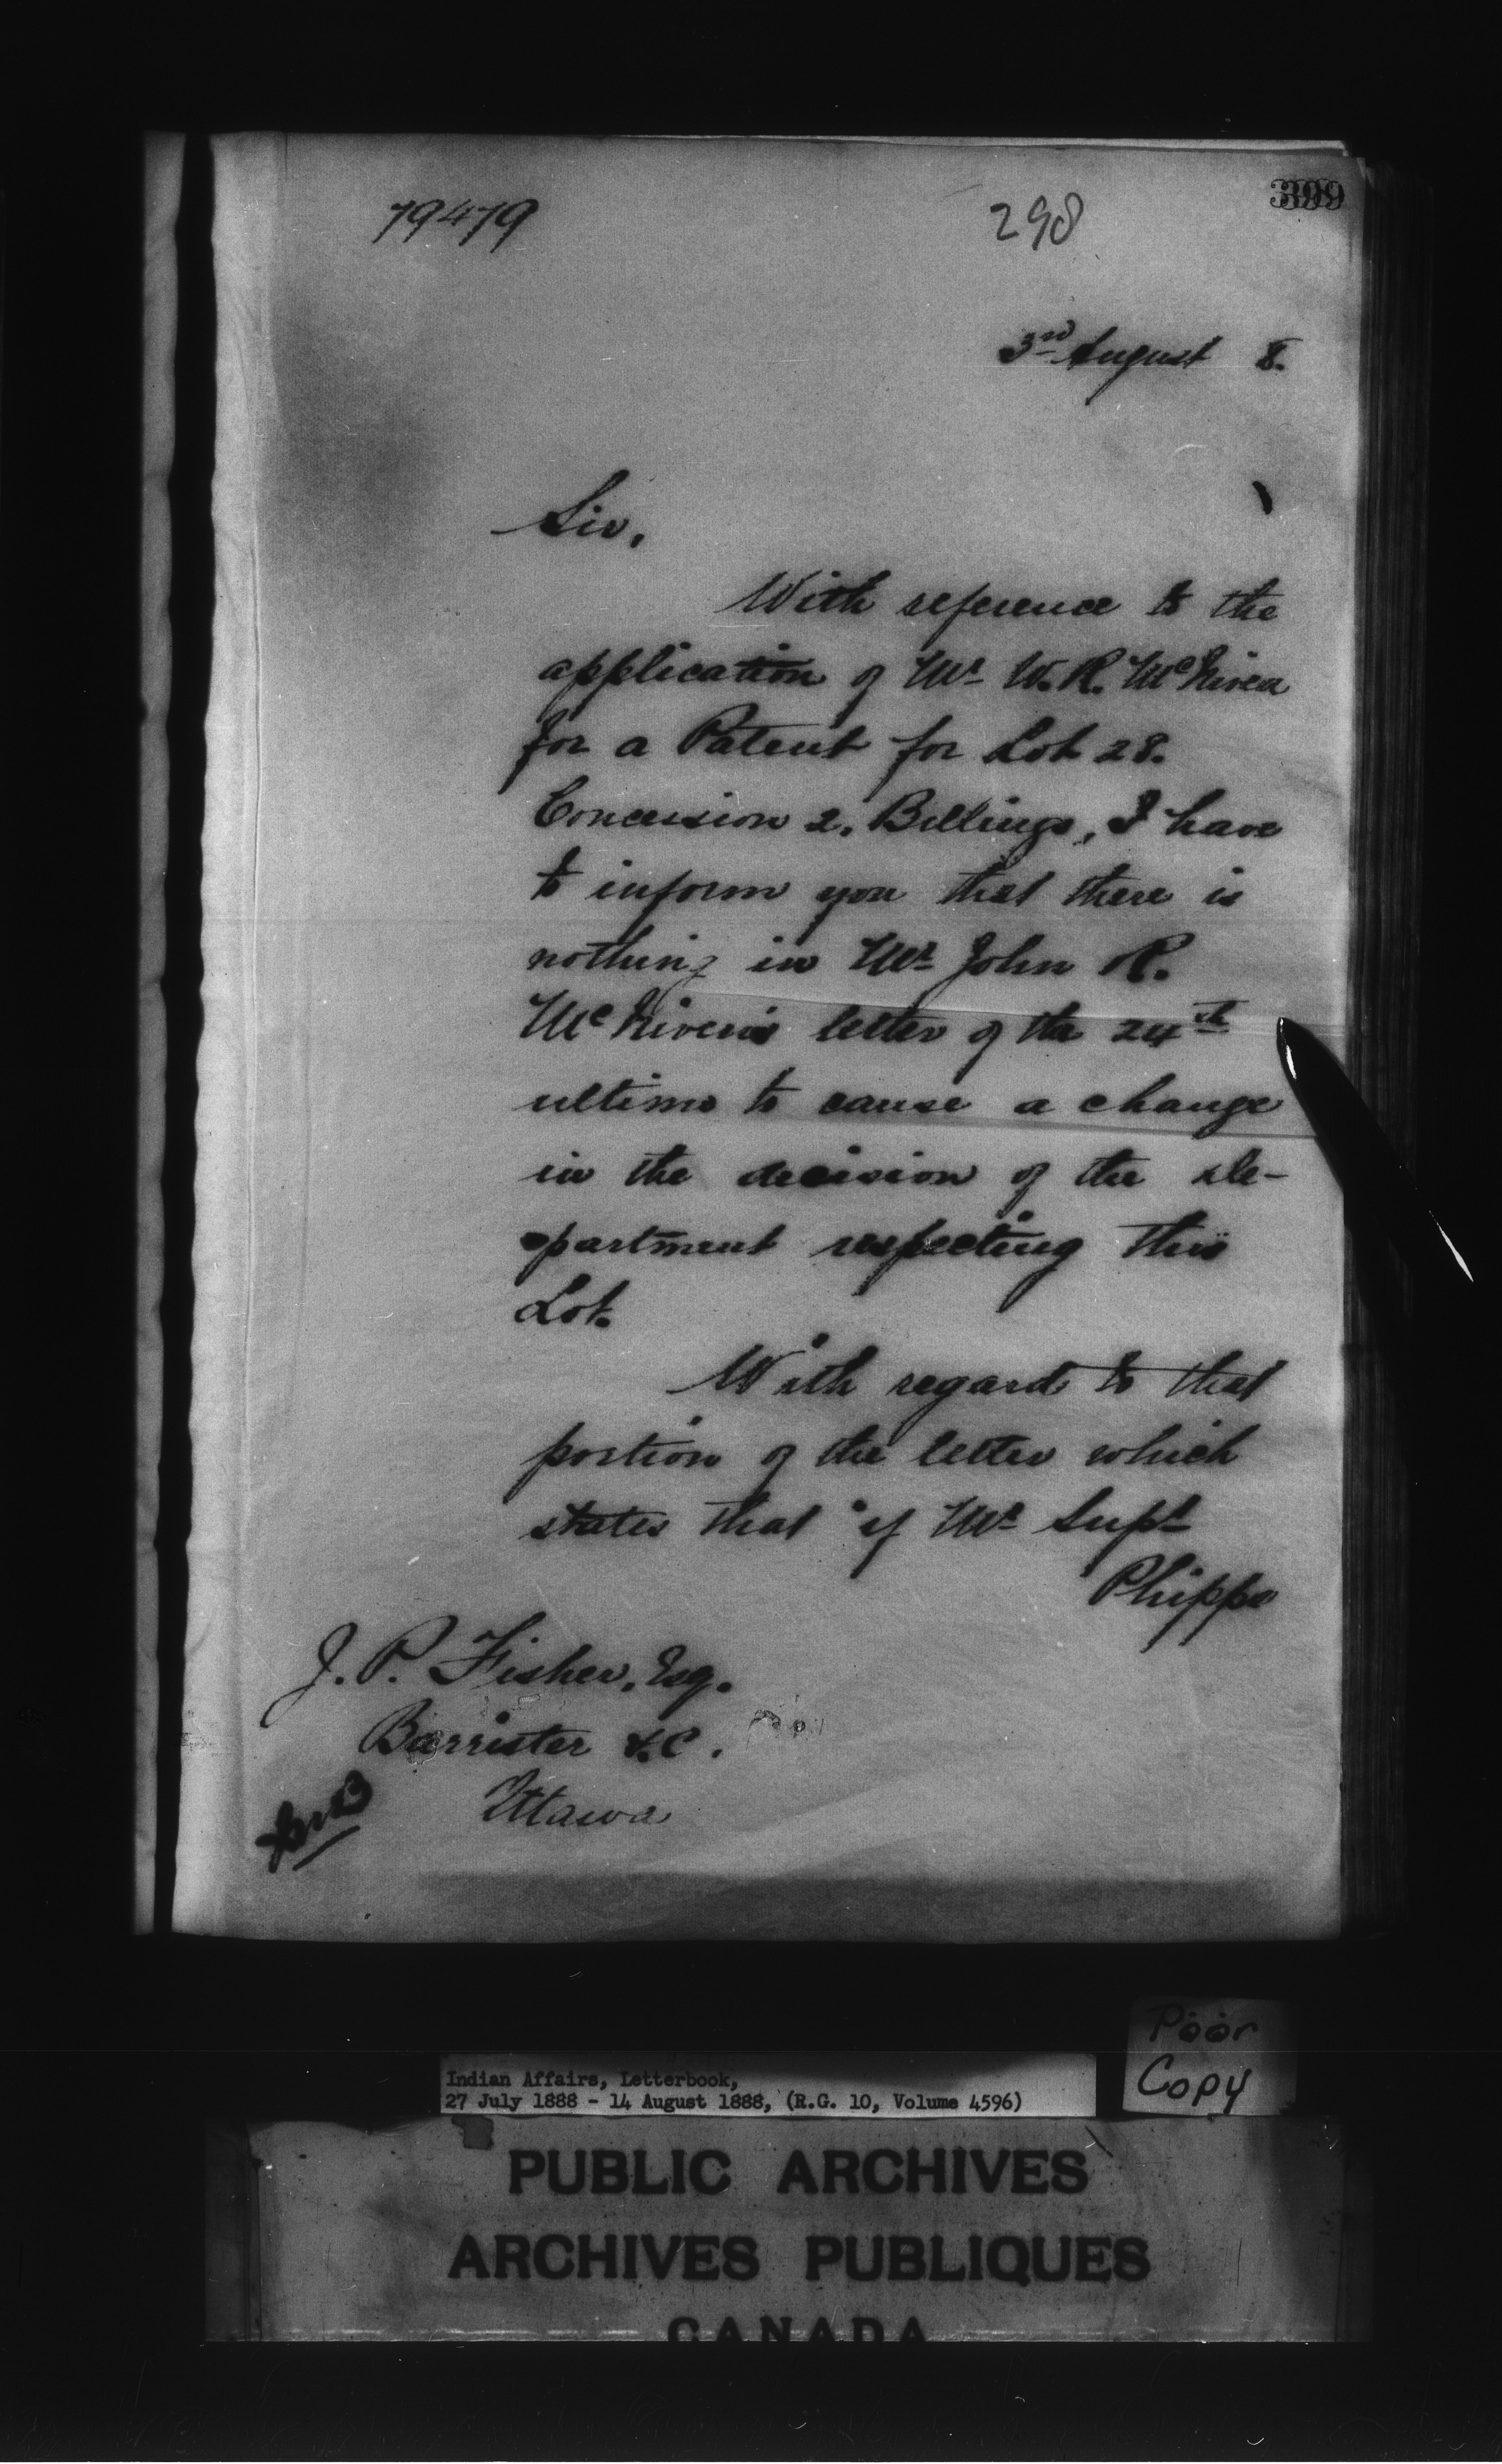 79479
298
399
3rd August 8.
Sir,
With reference to the
application of Mr W. R. McNiven
for a Patent for Lot 28.
Concession 2. Billings, I have
to inform you that there is
nothing in Mr John R.
McNiven's letter of the 24th
ultimo to cause a change
in the decision of the de-
partment respecting this
Lot.
With regard to that
portion of the letter which
states that "if Mr Supt
Phipps
J. P. Fisher, Esq.
Barrister &c.
Ottawa
Poor
Copy
Indian Affairs, Letterbook,
27 July 1888 - 14 August 1888, (R.G. 10, Volume 4596)
PUBLIC ARCHIVES
ARCHIVES PUBLIQUES
CANADA